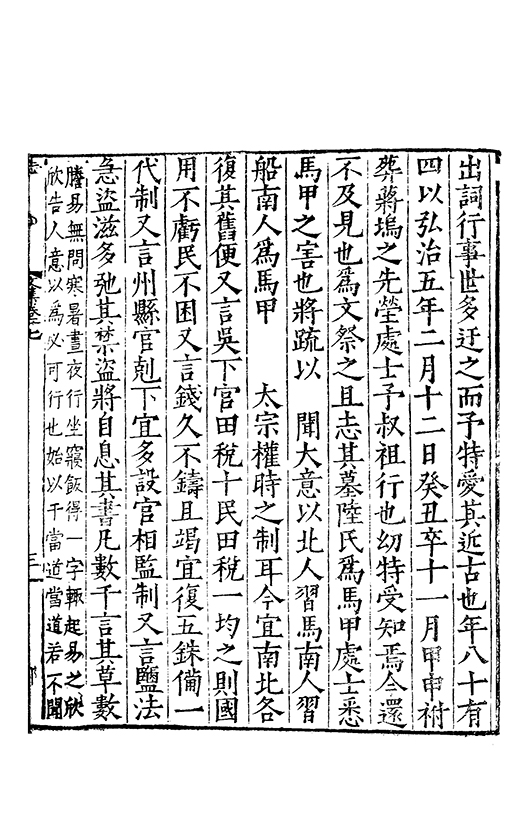 出詞行事世多迂之而予特愛其近古也年八十有
四以弘治五年二月十二日癸丑卒十一月甲申祔
葬蔣塢之先塋處士予叔祖行也幼特受知焉今還
不及見也爲文祭之且志其墓陸氏爲馬甲處士悉
馬甲之害也將疏以　聞大意以北人習馬南人習
船南人爲馬甲　　太宗權時之制耳今宜南北各
復其舊便又言吳下官田稅十民田稅一均之則國
用不虧民不困又言錢久不鑄且竭宜復五銖僃一
代制又言州縣官剋下宜多設官相監制又言鹽法
急盜滋多弛其禁盜將自息其書凡數千言其草數
謄易無問寒暑晝夜行坐寢飯得一字輙起易之欣
欣告人意以爲必可行也始以干當道當道若不聞